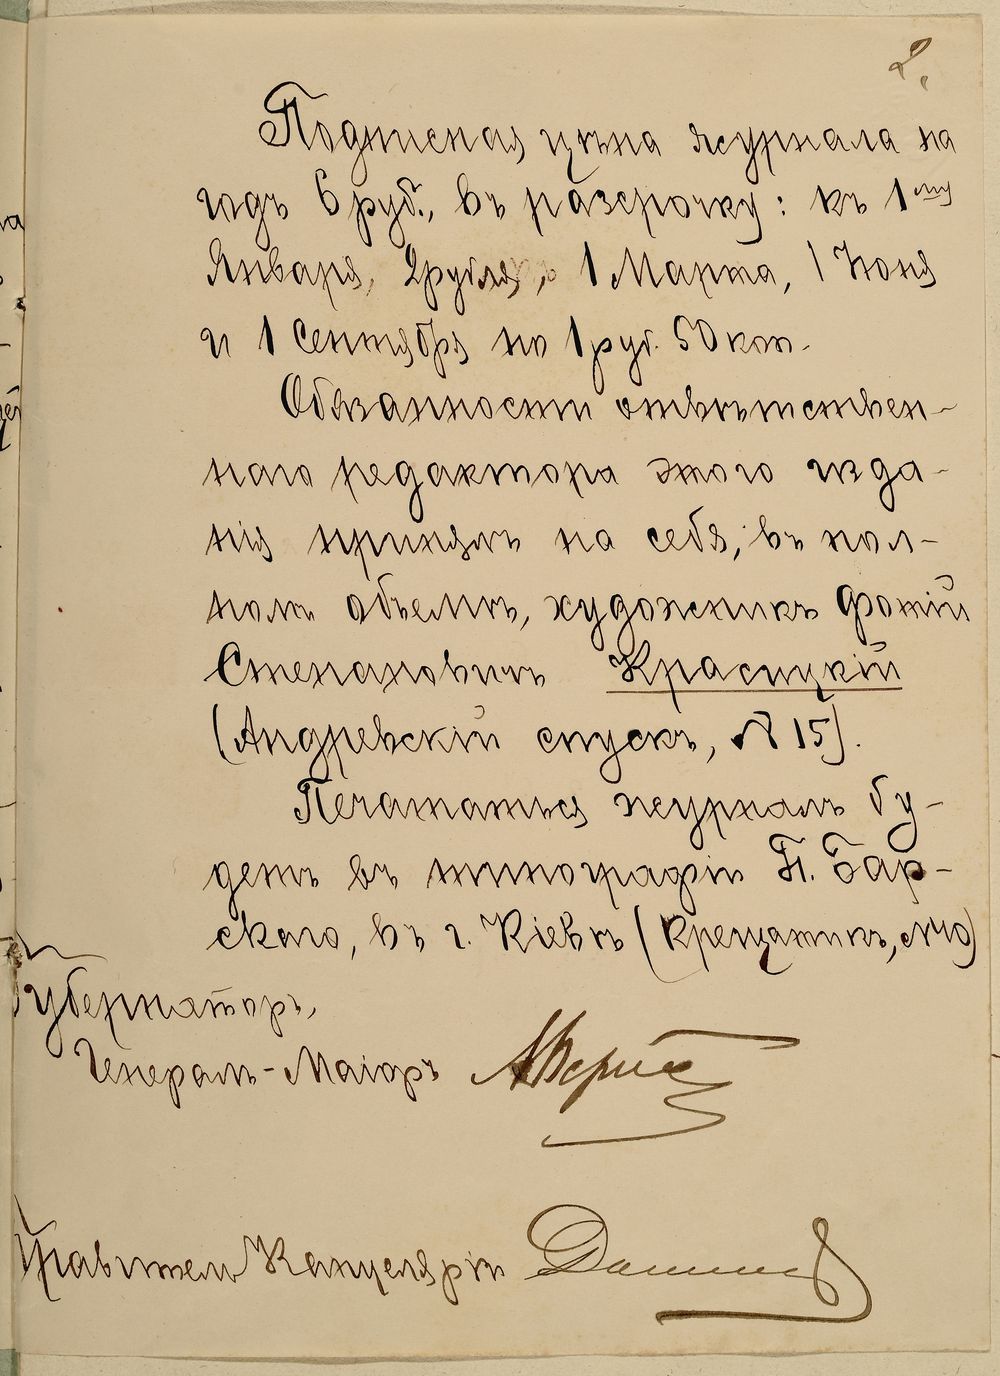 2.
Подписная цѣна журнала на
годъ 6 руб., въ разсрочку: къ 1му
Января, 2 рубля, 1 Марта, 1 Іюня
и 1 Сентября по 1 руб. 50 коп.
Обязанности отвѣтствен-
наго редактора этого изда-
нія принялъ на себя, въ пол-
номъ объемѣ, художникъ Фотій
Степановичъ Красицкій
(Андревскій спускъ, № 15).
Печататься журналъ бу-
детъ въ типографіи П. Бар-
скаго, въ г. Кіевѣ (Крещатикъ, №40)
Губернаторъ,
Генералъ-Маіоръ
Правитель Канцеляріи